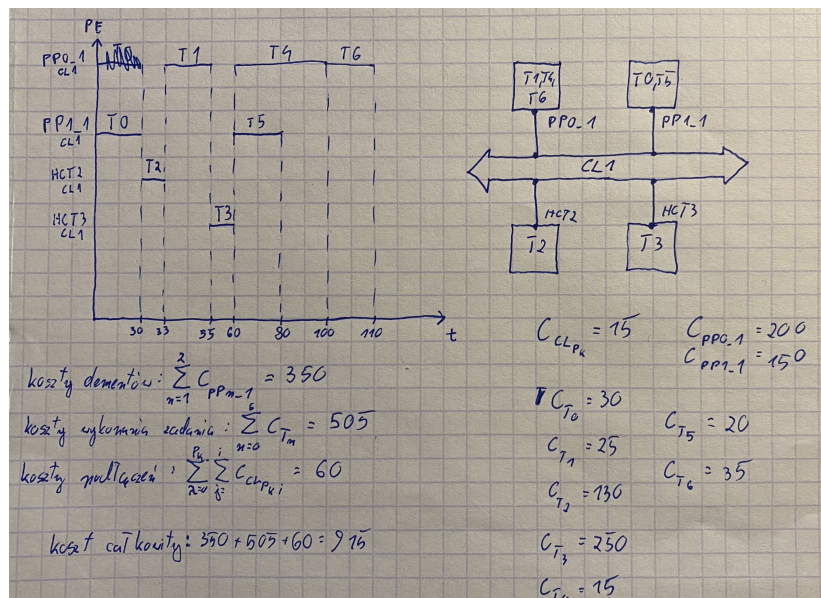 PE
PP0_1 CL1
T1
T4
T6
PP1_1 CL1
T0
T5
HCT2 CL1
T2
HCT3 CL1
T3
30 33 55 60 80 100 110 t
T1,T4, T6
T0,T5
PP0_1
PP1_1
CL1
HCT2
HCT3
T2
T3
koszty elementów: 2 ∑ n=1 C_PPn_1 = 350
koszty wykonania zadania: 6 ∑ n=0 C_Tn = 505
koszty podłączeń: ∑ ∑ C_CLPk i = 60
koszt całkowity: 350 + 505 + 60 = 915
C_CLPk = 15
C_PP0_1 = 200
C_PP1_1 = 150
C_T0 = 30
C_T1 = 25
C_T2 = 130
C_T3 = 250
= 15
C_T5 = 20
C_T6 = 35